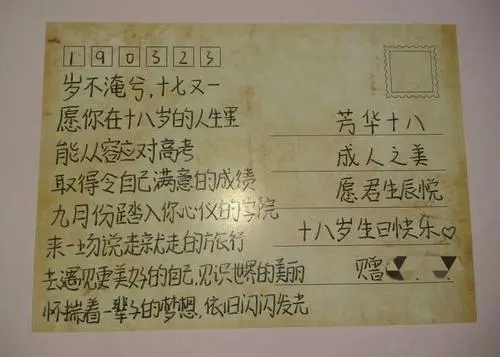 190323
岁不淹兮，十七又一
愿你在十八岁的人生里
能从容应对高考
取得令自己满意的成绩
九月份踏入你心仪的学院
来一场说走就走的旅行
去遇见更美好的自己，见识世界的美丽
怀揣着一辈子的梦想，依旧闪闪发光
芳华十八
成人之美
愿君生辰悦
十八岁生日快乐♡
赠